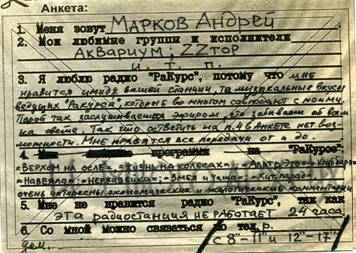 Анкета:
1. Меня зовут МАРКОВ Андрей
2. Мои любимые группы и исполнители
Аквариум, ZZтор
и т. п.
3. Я люблю радио "РаКурс", потому что мне
нравится имидж вашей станции, та музыкальные вкусы
ведущих "Ракурса", которые во многом совпадают с моими.
Порой так заслушиваешься эфиром, что забываешь обо всём
на свете. Так что ответить на п.4 в АНКЕТЕ нет воз-
можности. Мне нравятся все передачи от и до.
4. Мои программы на "РаКурсе"
"ВЕРХОМ на осле", "Жизнь на колёсах",
"НАВЕЯЛО", "Нержавейка", "Змея и чаша", "Хит-парад",
очень интересны экономические и экологические комментарии
5. Мне не нравится радио "РаКурс", так как
эта радиостанция НЕ РАБОТАЕТ 24 часа
6. Со мной можно связаться по тел.р.
дом. с 8⁰⁰-11⁰⁰ и 12⁰⁰-17⁰⁰